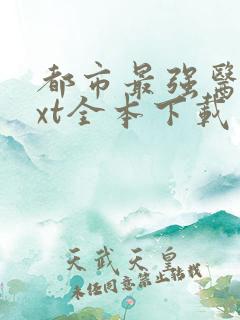 都市最强醫
xt全本下載
天武天皇
未经同意禁止转载